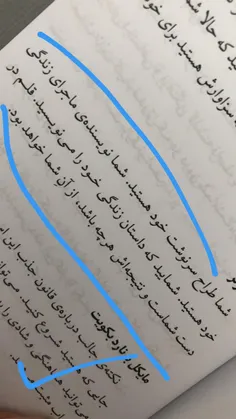 ید که حالا شما
سزاوارش هستید برای خود
شما طراح سرنوشت خود هستید. شما نویسنده‌ی ماجرای زندگی
خود هستید. شمایید که داستان زندگی خود را می نویسید. قلم در
دست شماست و نتیجه‌اش هر چه باشد، از آن شما خواهد بود.
مایکل برنارد بکویت
نکته‌ی جالب درباره‌ی قانون جذب این
جایی که
ید شروع کنید. می‌توانید
می‌توانید هماهنگی و شادی را